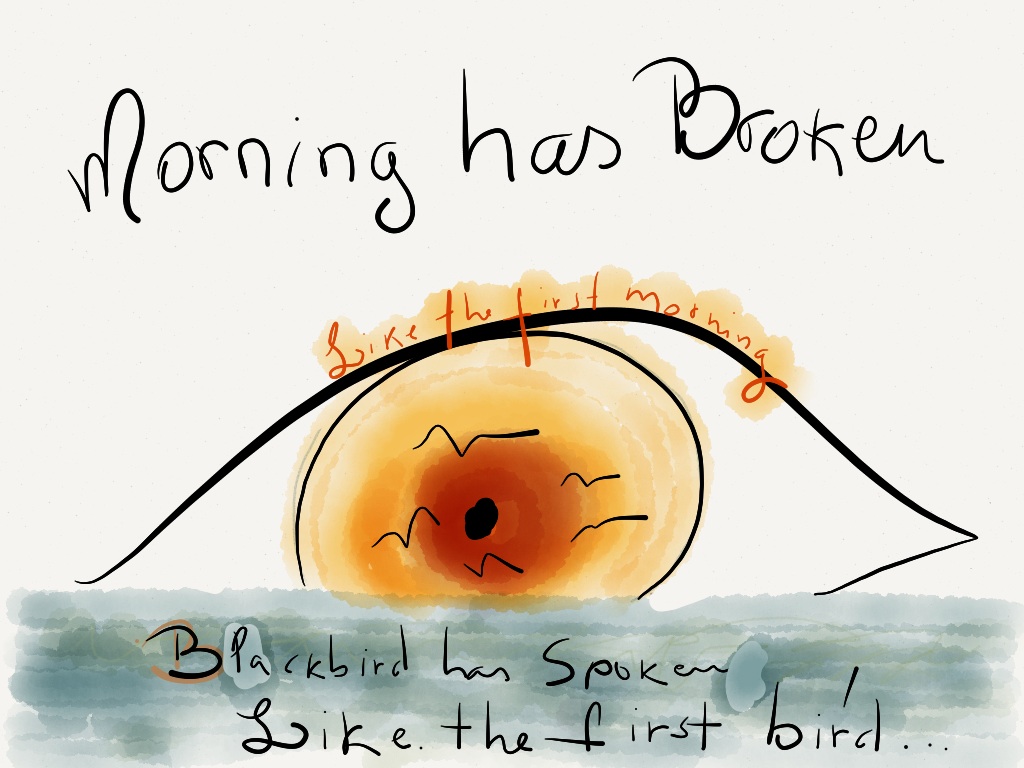 Morning has Broken
Like the first morning
Blackbird has Spoken
Like. the first bird...